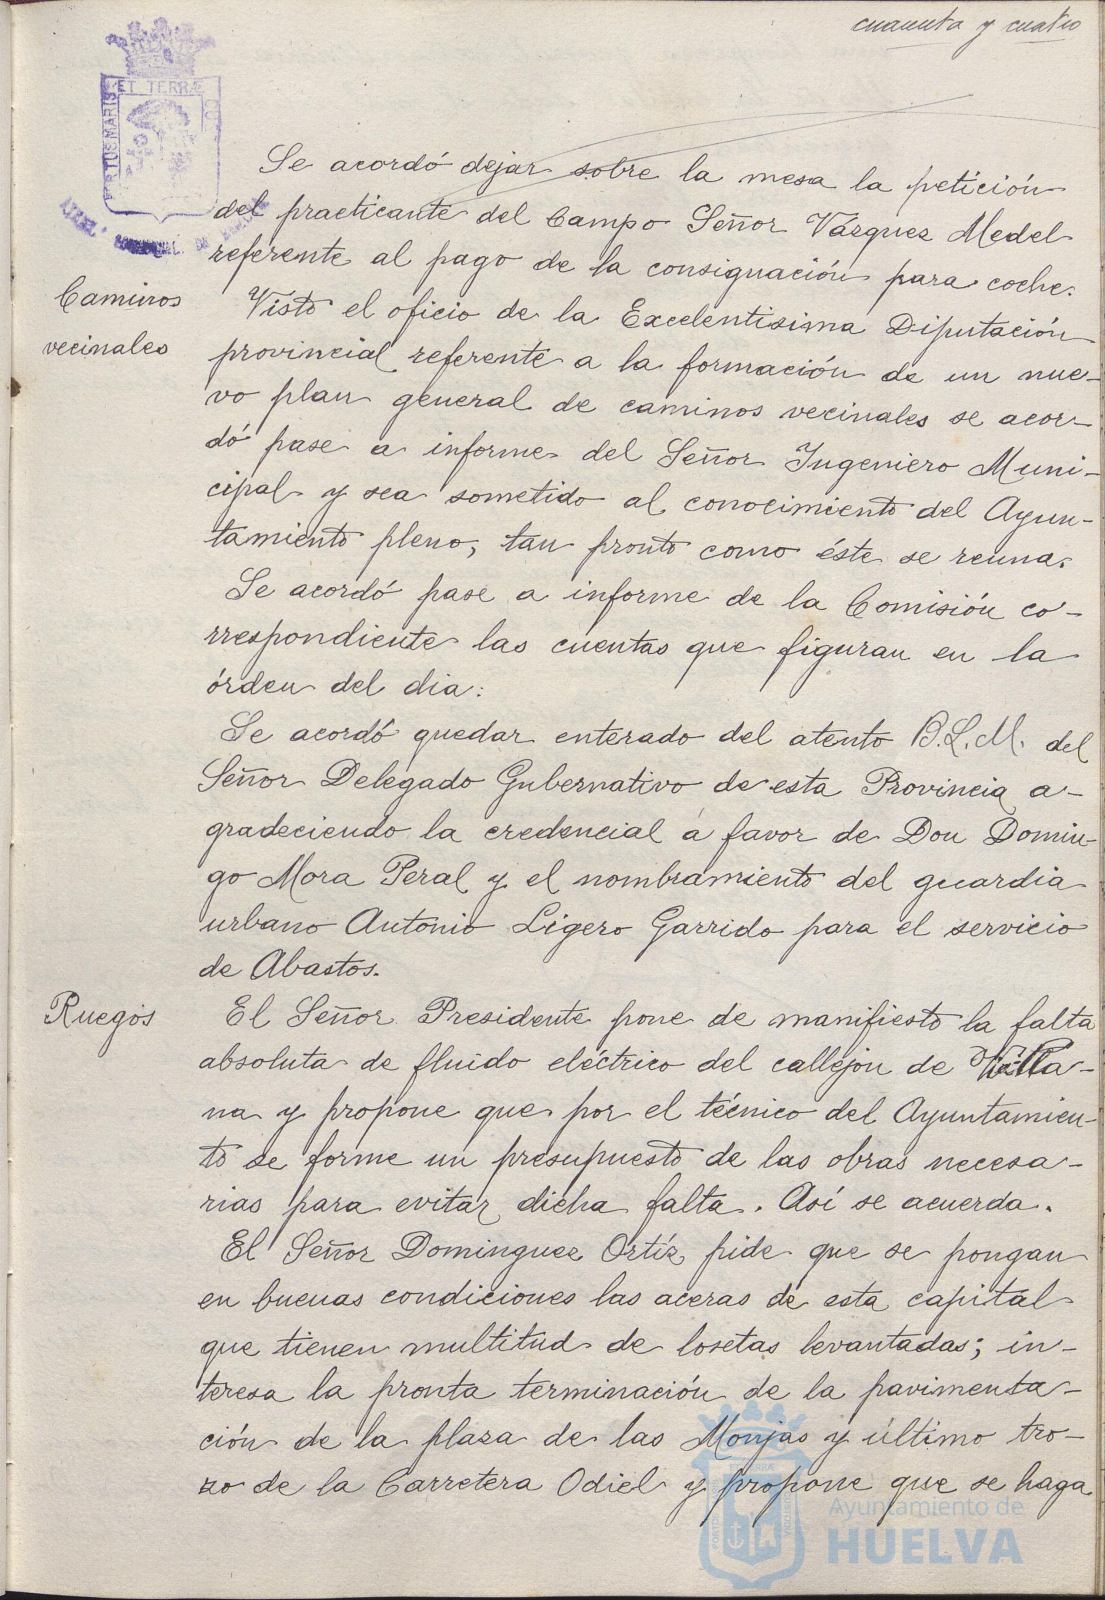 cuarenta y cuatro
PORTUS MARIS ET TERRÆ CUSTODIA
Se acordó dejar sobre la mesa la petición
del practicante del Campo Señor Vázquez Medel
referente al pago de la consignación para coche.
Caminos
vecinales
Visto el oficio de la Excelentisima Diputación
provincial referente a la formación de un nue-
vo plan general de caminos vecinales se acor-
dó pase a informe del Señor Ingeniero Muni-
cipal y sea sometido al conocimiento del Ayun-
tamiento pleno, tan pronto como éste se reuna.
Se acordó pase a informe de la Comisión co-
rrespondiente las cuentas que figuran en la
órden del dia:
Se acordó quedar enterado del atento B.L.M. del
Señor Delegado Gubernativo de esta Provincia a-
gradeciendo la credencial a favor de Don Domin-
go Mora Peral y el nombramiento del guardia
urbano Antonio Ligero Garrido para el servicio
de Abastos.
Ruegos
El Señor Presidente pone de manifiesto la falta
absoluta de fluido eléctrico del callejon de Villa-
na y propone que por el técnico del Ayuntamien-
to se forme un presupuesto de las obras necesa-
rias para evitar dicha falta. Así se acuerda.
El Señor Dominguez Ortíz pide que se pongan
en buenas condiciones las aceras de esta capital
que tienen multitud de losetas levantadas; in-
teresa la pronta terminación de la pavimenta-
ción de la plaza de las Monjas y último tro-
zo de la Carretera Odiel y propone que se haga
Ayuntamiento de
HUELVA